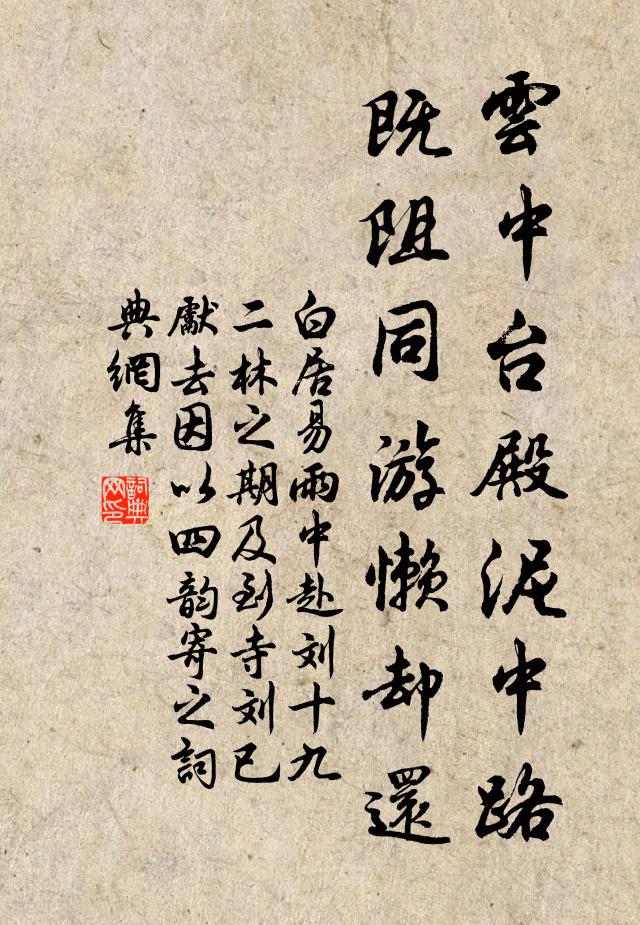 雲中台殿泥中路
既阻同游懒却還
白居易雨中赴刘十九
二林之期及到寺刘已
獻去因以四韵寄之詞
典網集
詞典网印